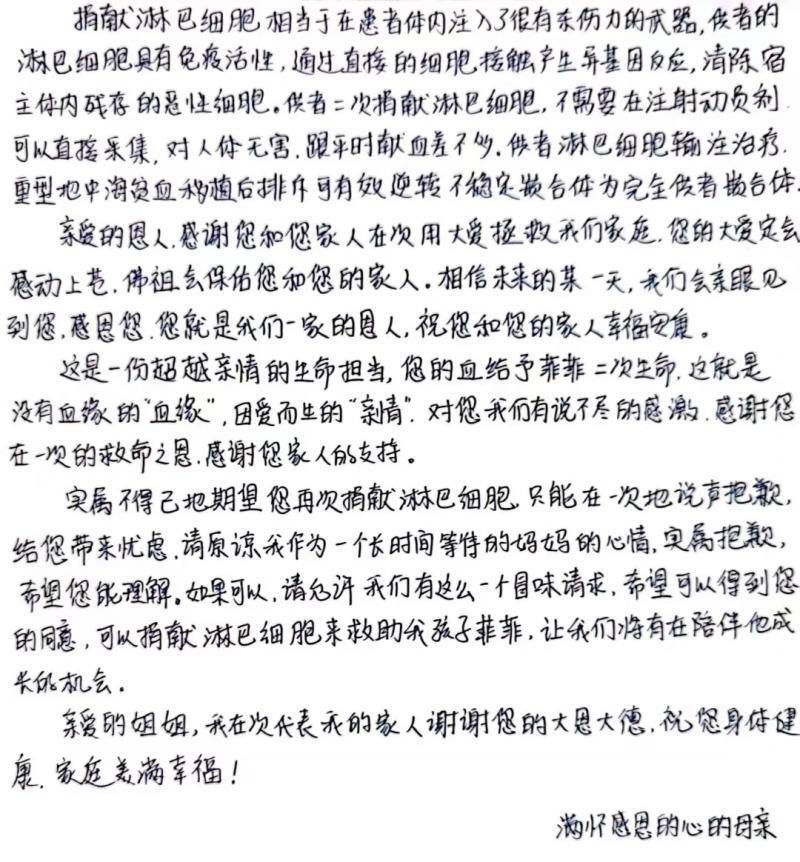 捐献淋巴细胞相当于在患者体内注入了很有杀伤力的武器,供者的
淋巴细胞具有免疫活性,通过直接的细胞接触产生异基因反应,清除宿
主体内残存的恶性细胞。供者二次捐献淋巴细胞,不需要在注射动员剂
可以直接采集,对人体无害,跟平时献血差不多.供者淋巴细胞输注治疗.
重型地中海贫血移植后排斥可有效逆转不稳定嵌合体为完全供者嵌合体.
亲爱的恩人.感谢您和您家人在次用大爱拯救我们家庭.您的大爱定会
感动上苍.佛祖会保佑您和您的家人。相信未来的某一天,我们会亲眼见
到您,感恩您.您就是我们一家的恩人,祝您和您的家人幸福安康。
这是一份超越亲情的生命担当,您的血给予菲菲二次生命.这就是
没有血缘的"血缘",因爱而生的"亲情".对您我们有说不尽的感激.感谢您
在一次的救命之恩.感谢您家人的支持。
实属不得已地期望您再次捐献淋巴细胞.只能在一次地说声抱歉,
给您带来忧虑.请原谅我作为一个长时间等待的妈妈的心情,实属抱歉,
希望您能理解。如果可以,请允许我们有这么一个冒昧请求.希望可以得到您
的同意,可以捐献淋巴细胞来救助我孩子菲菲,让我们将有在陪伴他成
长的机会。
亲爱的姐姐,我在次代表我的家人谢谢您的大恩大德.祝您身体健
康.家庭美满幸福!
满怀感恩的心的母亲